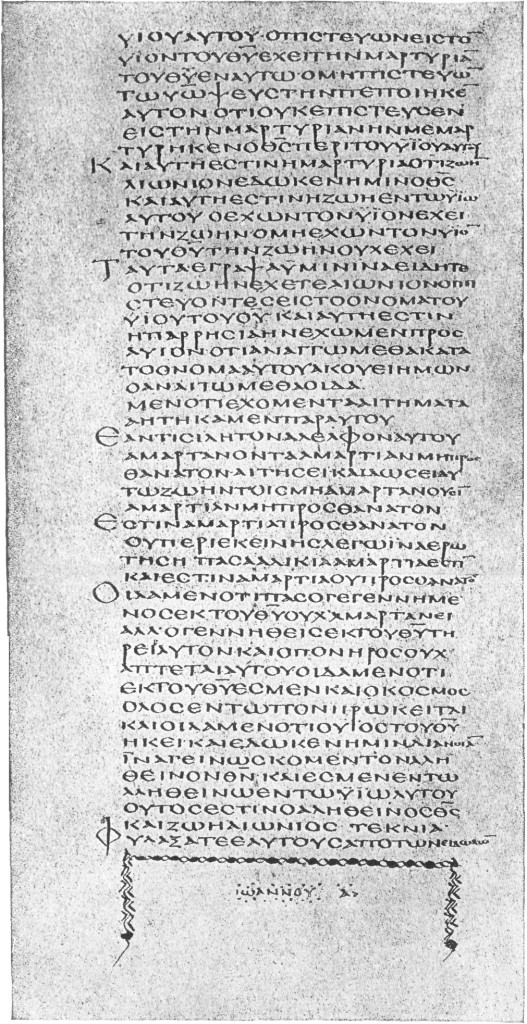 ΥΙΟΥΑΥΤΟΥ·ΟΠΙϹΤΕΥΩΝΕΙϹΤΟ̅
ΥΙΟΝΤΟΥΘ̅Υ̅ΕΧΕΙΤΗΝΜΑΡΤΥΡΙΑ̅
ΤΟΥΘ̅Υ̅ΕΝΑΥΤΩ·ΟΜΗΠΙϹΤΕΥΩ̅
ΤΩΥΩ̅ΨΕΥϹΤΗΝΠΕΠΟΙΗΚΕ
ΑΥΤΟΝΟΤΙΟΥΚΕΠΙϹΤΕΥϹΕΝ
ΕΙϹΤΗΝΜΑΡΤΥΡΙΑΝΗΝΜΕΜΑΡ
ΤΥΡΗΚΕΝΟΘ̅Ϲ̅ΠΕΡΙΤΟΥΥΙΟΥΑΥΤΟΥ
ΚΑΙΑΥΤΗΕϹΤΙΝΗΜΑΡΤΥΡΙΑΟΤΙΖΩΗ̅
ΑΙΩΝΙΟΝΕΔΩΚΕΝΗΜΙΝΟΘ̅Ϲ̅
ΚΑΙΑΥΤΗΕϹΤΙΝΗΖΩΗΕΝΤΩΥΙΩ
ΑΥΤΟΥ ΟΕΧΩΝΤΟΝΥΙΟΝΕΧΕΙ
ΤΗΝΖΩΗΝΟΜΗΕΧΩΝΤΟΝΥΙΟ̅
ΤΟΥΘ̅Υ̅ΤΗΝΖΩΗΝΟΥΚΕΧΕΙ
ΤΑΥΤΑΕΓΡΑΨΑΥΜΙΝΙΝΑΕΙΔΗΤΕ
ΟΤΙΖΩΗΝΕΧΕΤΕΑΙΩΝΙΟΝΟΙΠΙ
ϹΤΕΥΟΝΤΕϹΕΙϹΤΟΟΝΟΜΑΤΟΥ
ΥΙΟΥΤΟΥΘ̅Υ̅ ΚΑΙΑΥΤΗΕϹΤΙΝ
ΗΠΑΡΡΗϹΙΑΗΝΕΧΩΜΕΝΠΡΟϹ
ΑΥΙΟΝ·ΟΤΙΑΝΑΙΤΩΜΕΘΑΚΑΤΑ
ΤΟΘΝΟΜΑΑΥΤΟΥΑΚΟΥΕΙΗΜΩΝ
ΟΑΝΑΙΤΩΜΕΘΑΟΙΔΑ
ΜΕΝΟΤΙΕΧΟΜΕΝΤΑΑΙΤΗΜΑΤΑ
ΑΗΤΗΚΑΜΕΝΠΑΡΑΥΤΟΥ
ΕΑΝΤΙϹΙΔΗΤΟΝΑΔΕΛΦΟΝΑΥΤΟΥ
ΑΜΑΡΤΑΝΟΝΤΑΑΜΑΡΤΙΑΝΜΗΠΡΟϹ
ΘΑΝΑΤΟΝΑΙΤΗϹΕΙΚΑΙΔΩϹΕΙΑΥ
ΤΩΖΩΗΝΤΟΙϹΜΗΑΜΑΡΤΑΝΟΥϹΙ̅
ΑΜΑΡΤΙΑΝΜΗΠΡΟϹΘΑΝΑΤΟΝ
ΕϹΤΙΝΑΜΑΡΤΙΑΠΡΟϹΘΑΝΑΤΟΝ
ΟΥΠΕΡΙΕΚΕΙΝΗϹΛΕΓΩΙΝΑΕΡΩ
ΤΗϹΗ ΠΑϹΑΑΔΙΚΙΑΑΜΑΡΤΙΑΕϹΤΙ̅
ΚΑΙΕϹΤΙΝΑΜΑΡΤΙΑΟΥΠΡΟϹΘΑΝΑΤΟ̅
ΟΙΔΑΜΕΝΟΤΙΠΑϹΟΓΕΓΕΝΝΗΜΕ
ΝΟϹΕΚΤΟΥΘ̅Υ̅ΟΥΧΑΜΑΡΤΑΝΕΙ
ΑΛΛ·ΟΓΕΝΝΗΘΕΙϹΕΚΤΟΥΘ̅Υ̅ΤΗ
ΡΕΙΑΥΤΟΝΚΑΙΟΠΟΝΗΡΟϹΟΥΧ
ΑΠΤΕΤΑΙΑΥΤΟΥΟΙΔΑΜΕΝΟΤΙ
ΕΚΤΟΥΘ̅Υ̅ΕϹΜΕΝΚΑΙΟΚΟϹΜΟϹ
ΟΛΟϹΕΝΤΩΠΟΝΗΡΩΚΕΙΤΑΙ
ΚΑΙΟΙΔΑΜΕΝΟΤΙΟΥΙΟϹΤΟΥΘ̅Υ̅
ΗΚΕΙΚΑΙΕΔΩΚΕΝΗΜΙΝΔΙΑΝΟΙΑ̅
ΙΝΑΓΕΙΝΩϹΚΟΜΕΝΤΟΝΑΛΗ
ΘΕΙΝΟΝΘ̅Ν̅·ΚΑΙΕϹΜΕΝΕΝΤΩ
ΑΛΗΘΕΙΝΩΕΝΤΩΥΙΩΑΥΤΟΥ
ΟΥΤΟϹΕϹΤΙΝΟΑΛΗΘΕΙΝΟϹΘ̅Ϲ̅
ΚΑΙΖΩΗΑΙΩΝΙΟϹ ΤΕΚΝΙΑ
ΦΥΛΑΞΑΤΕΕΑΥΤΟΥϹΑΠΟΤΩΝΕΙΔΩΛΩΝ
ΙΩΑΝΝΟΥ Α